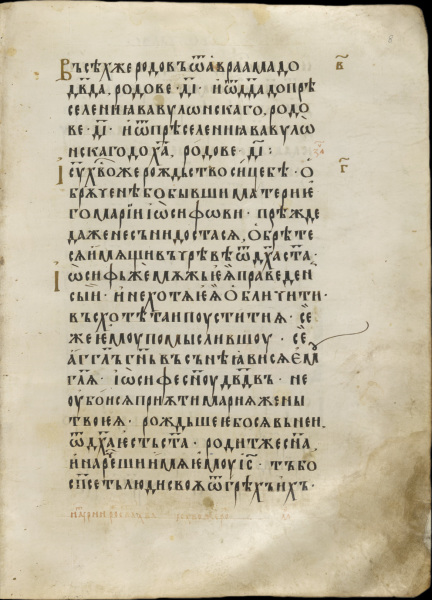 Въсѣхже родовъ ѿ авраама до
дв҃да, родове · д҃і · и ѿ дв҃да до прѣ
селениꙗ вавѵлѡнскаго, родо
ве · д҃і · и ѿ прѣселениꙗ вавѵлѡ
нскаго до х҃а, родове · д҃і :
І҆с҃у х҃во же рождьство сице бѣ · о
брѫчене бо бывши матери е
го марїи їѡсифови · прѣжде
даже не сънидостасѧ, обрѣте
сѧ имѫщи въ чрѣвѣ ѿ дх҃а ст҃а
їѡсифь же мѫжь еѧ праведен
сыи · и не хотѧ еѧ обличити ·
въсхотѣ таи поустити ѧ · се҃
же емоу помысливш оу · се҃
агг҃лъ г҃нь въ сънѣ ꙗвисѧ емꙋ
гл҃ѧ · їѡсифе сн҃оу дв҃двъ · не
оубоисѧ приѧти мариѧ жены
твоеѧ · рождьшеебосѧ вь неи
ѿ дх҃а естъ ст҃а · родитже сн҃а,
и наречеши имѧ емоу іс҃ · тъ бо
сп҃сетъ люди своѧ ѿ грѣхъ ихъ ·
в҃
г҃